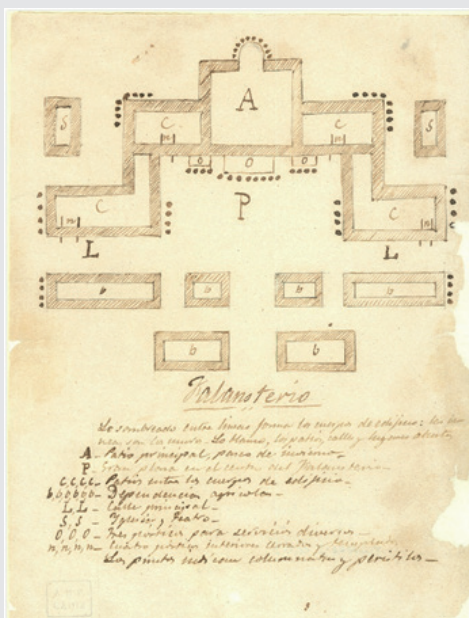 A
S
C
n
C
n
S
O
O
O
P
C
n
C
n
L
L
b
b
b
b
b
b
Falansterio
Lo sombreado entre lineas forma los cuerpos de edificio: las
son los muros. Lo blanco, los patios, calles y lugares abiertos
A - Patio principal, paseo de invierno -
P - Gran plaza en el centro del Falansterio
C,C,C,C - Patios entre los cuerpos de edificio -
b,b,b,b,b,b - Dependencias agricolas -
L, L - Calle principal -
S, S - Iglesia y Teatro -
O O O - Tres pórticos para servicios diversos -
n, n, n, n - Cuatro pórticos interiores cerrados y
Los puntos indican columnatas y peristilos -